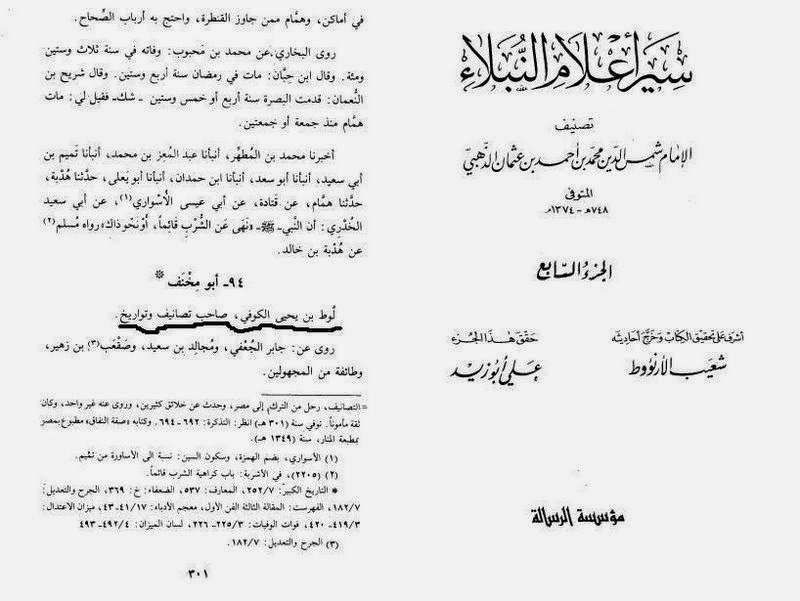 سير أعلام النبلاء
تصنيف
الإمام شمس الدين محمد بن أحمد بن عثمان الذهبي
المتوفى
٧٤٨هـ - ١٣٧٤م
الجزء السابع
حقق هذا الجزء
علي أبو زيد
أشرف على تحقيق الكتاب وخرج أحاديثه
شعيب الأرنؤوط
مؤسسة الرسالة
في أماكن، وهمَّام ممن جاوز القنطرة، واحتج به أرباب الصِّحاح.
روى البخاري عن محمد بن مَحبوب: وفاته في سنة ثلاث وستين
ومئة. وقال ابن حِبَّان: مات في رمضان سنة أربع وستين. وقال شريح بن
النُّعمان: قدمت البصرة سنة أربع أو خمس وستين - شك- فقيل لي: مات
همَّام منذ جمعة أو جمعتين.
أخبرنا محمد بن المُطهَّر، أنبأنا عبد المُعِز بن محمد، أنبأنا تَميم بن
أبي سعيد، أنبأنا أبو سعد، أنبأنا ابن حمدان، أنبأنا أبو يَعلى، حدَّثنا هُدْبة،
حدَّثنا همَّام، عن قَتادة، عن أبي عيسى الأُسْواري(١)، عن أبي سعيد
الخُدْري: أن النَّبي- ﷺ- «نَهَى عَن الشُّرْبِ قَائِماً، أَوْ نَحْو ذاك» رواه مُسلم(٢)
عن هُدْبة بن خالد.
٩٤- أبو مِخْنَف *
لُوط بن يحيى الكوفي، صاحب تصانيف وتواريخ.
روى عن: جابر الجُعْفي، ومُجالِد بن سعيد، وصَقْعَب(٣) بن زهير،
وطائفة من المجهولين.
= التصانيف، رحل من الترك إلى مصر، وحدث عن خلائق كثيرين، وروى عنه غير واحد، وكان
ثقة مأموناً. توفي سنة (٣٠١ هـ) انظر: التذكرة: ٦٩٢- ٦٩٤. وكتابه «صفة النفاق» مطبوع بمصر
بمطبعة المنار، سنة (١٣٤٩ هـ).
(١) الأسواري، بضم الهمزة، وسكون السين: نسبة الى الأساورة من تميم.
(٢) (٢٢٠٥)، في الأشربة: باب كراهية الشرب قائماً.
* التاريخ الكبير: ٢٥٢/٧، المعارف: ٥٣٧، الضعفاء: خ: ٣٦٩، الجرح والتعديل:
١٨٢/٧، الفهرست: المقالة الثالثة الفن الأول، معجم الأدباء: ٤١/١٧-٤٣، ميزان الاعتدال:
٤١٩/٣- ٤٢٠، فوات الوفيات: ٢٢٥/٣- ٢٢٦، لسان الميزان: ٤٩٢/٤- ٤٩٣
(٣) الجرح والتعديل: ١٨٢/٧.
٣٠١